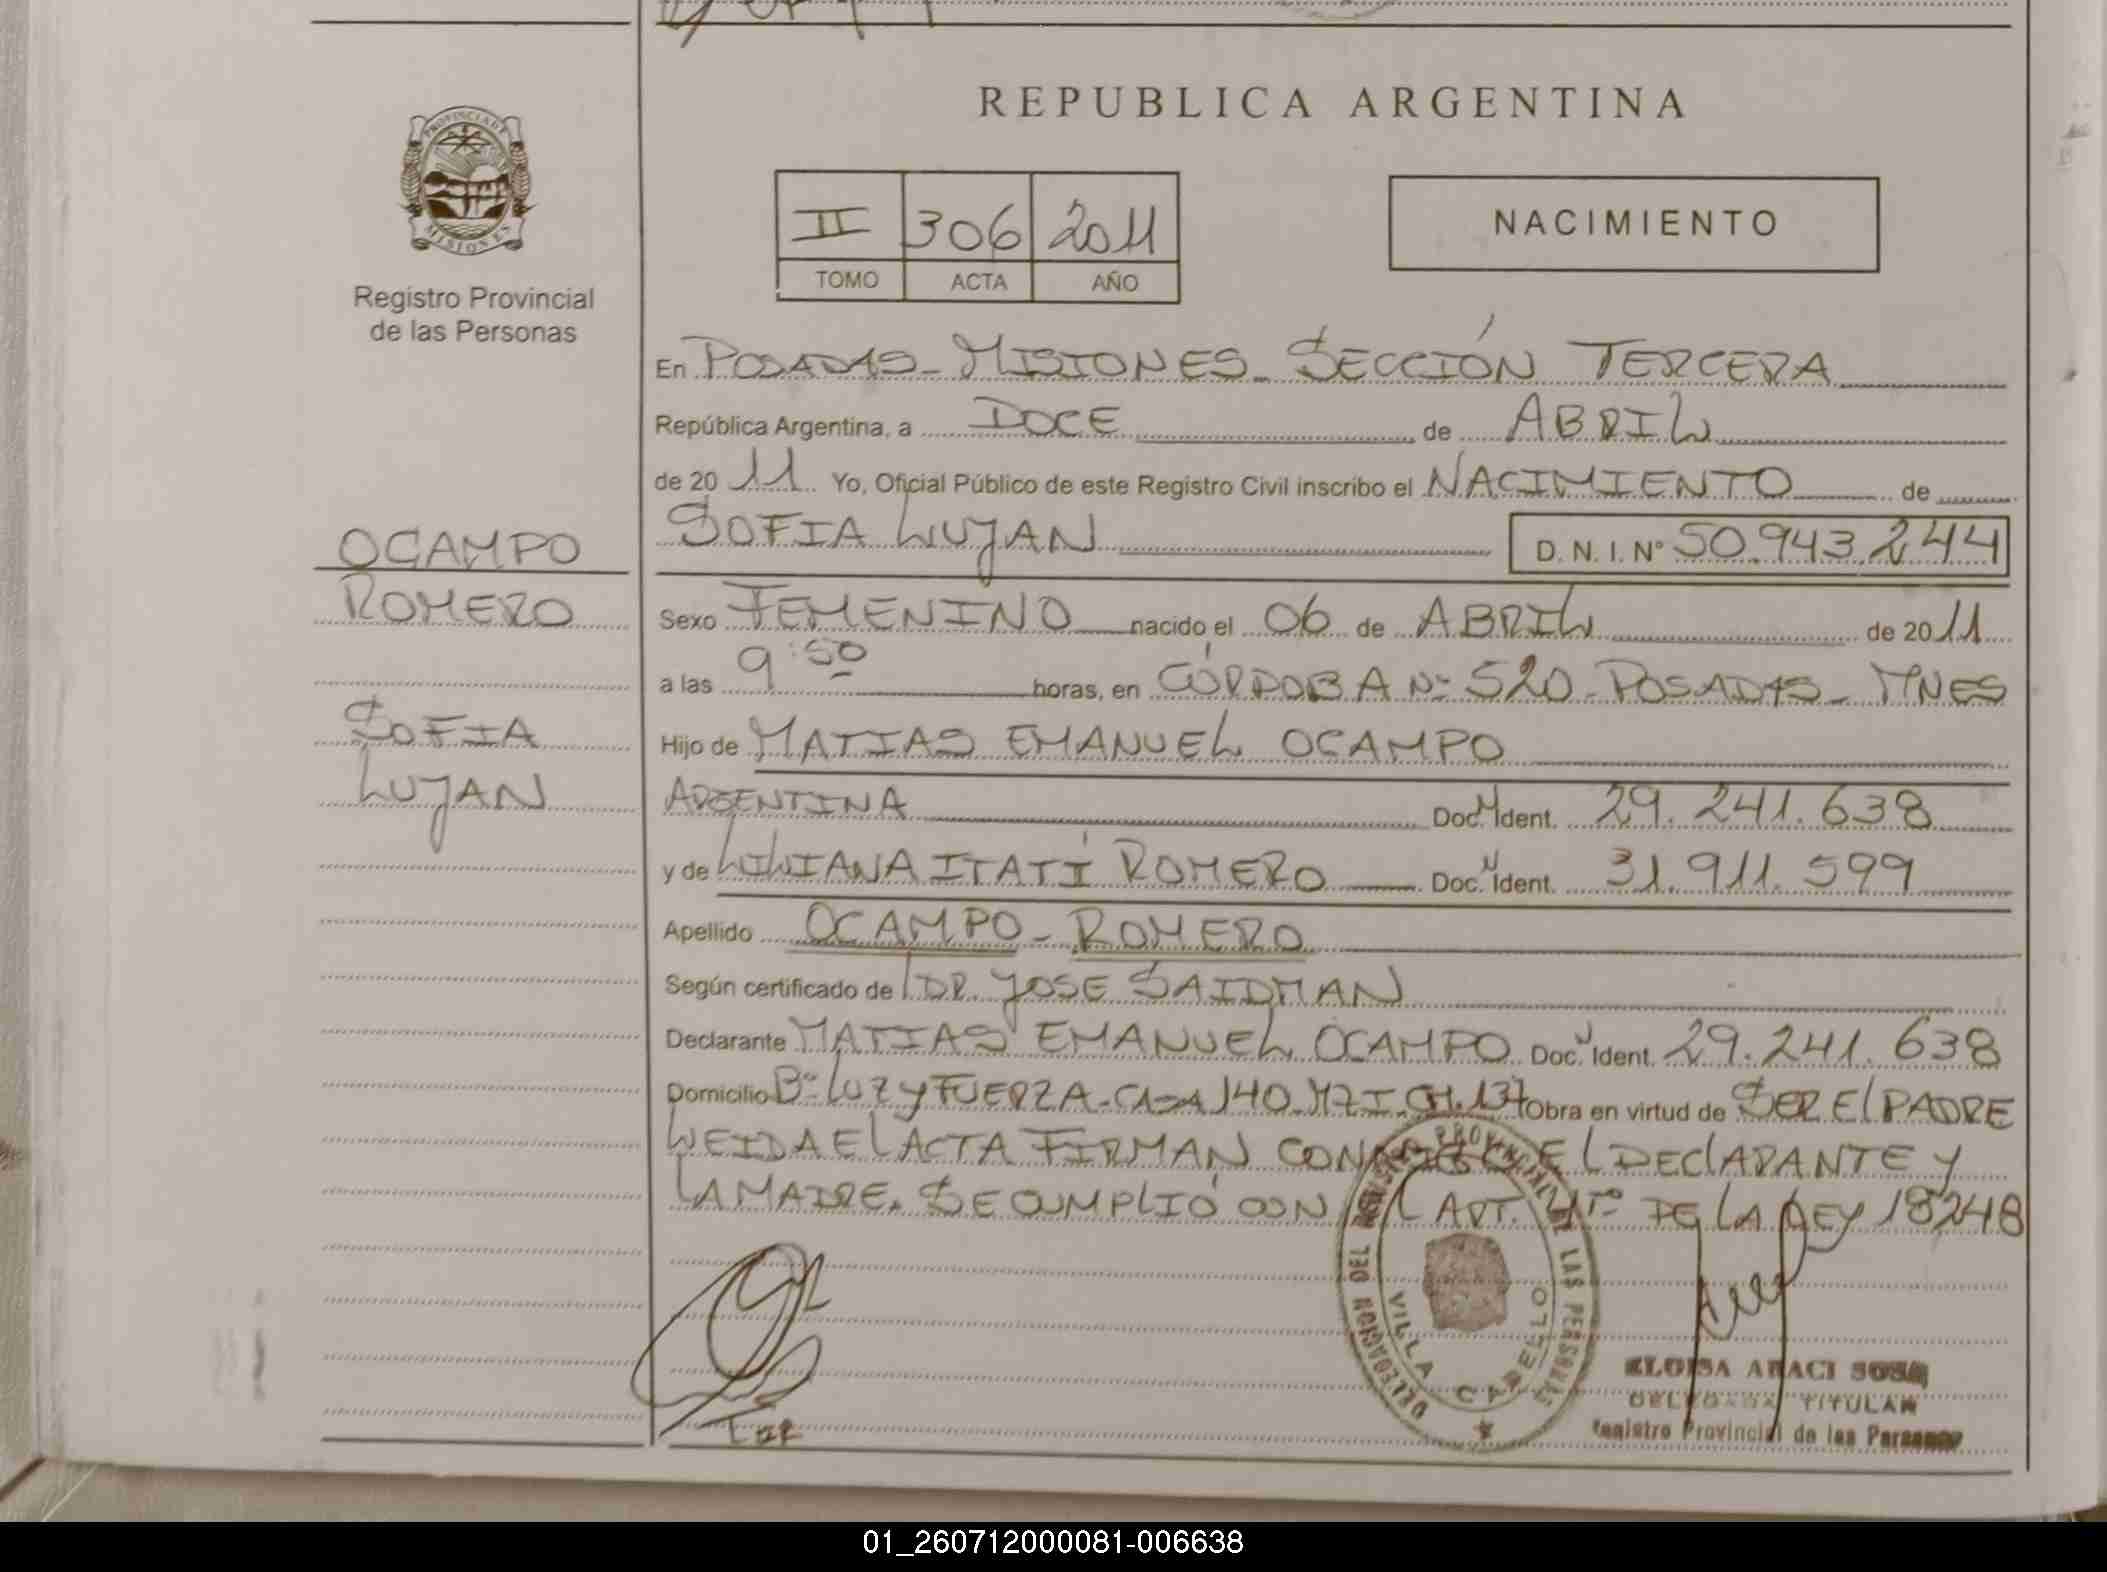 REPUBLICA ARGENTINA
PROVINCIA DE
MISIONES
Registro Provincial
de las Personas
II 306 2011
TOMO ACTA AÑO
NACIMIENTO
En POSADAS - MISIONES - SECCIÓN TERCERA
República Argentina, a DOCE de ABRIL
de 2011 Yo, Oficial Público de este Registro Civil inscribo el NACIMIENTO de
SOFIA LUJAN D.N.I. Nº 50.943.244
Sexo FEMENINO nacido el 06 de ABRIL de 2011
a las 9:50 horas, en CÓRDOBA Nº 520 - POSADAS - MNES
Hijo de MATIAS EMANUEL OCAMPO
ARGENTINA Doc. N Ident. 29.241.638
y de LILIANA ITATÍ ROMERO Doc. N Ident. 31.911.599
Apellido OCAMPO - ROMERO
Según certificado de DR. JOSE SAIDMAN
Declarante MATIAS EMANUEL OCAMPO Doc. N Ident. 29.241.638
Domicilio Bº LUZ Y FUERZA - CASA 140 - MZ I - CH. 137 Obra en virtud de SER EL PADRE
LEIDA EL ACTA FIRMAN CONMIGO EL DECLARANTE Y
LA MADRE. SE CUMPLIÓ CON EL ART. 4º DE LA LEY 18248
OCAMPO
ROMERO
SOFIA
LUJAN
DELEGACION DEL REGISTRO PROVINCIAL DE LAS PERSONAS
VILLA CABELLO
ELOISA ARACI SOSA
DELEGADA TITULAR
Registro Provincial de las Personas
01_260712000081-006638